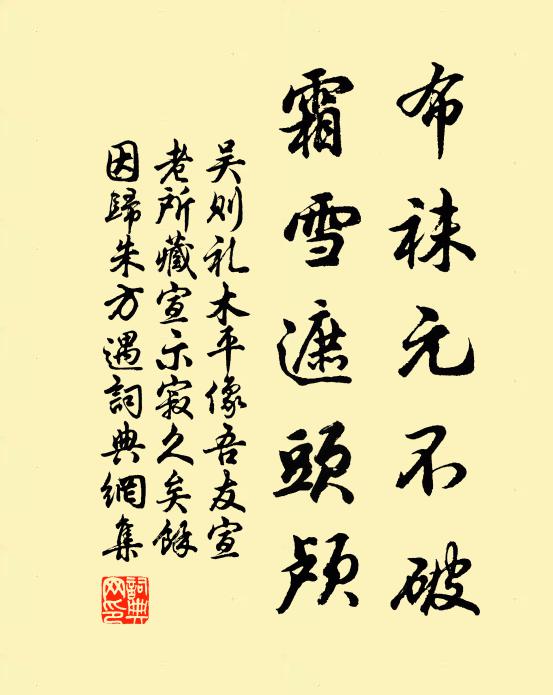 布袜元不破
霜雪遮頭颅
吴则礼木平像吾友宣
老所藏宣示寂久矣馀
因歸朱方遇詞典網集
詞典
网印